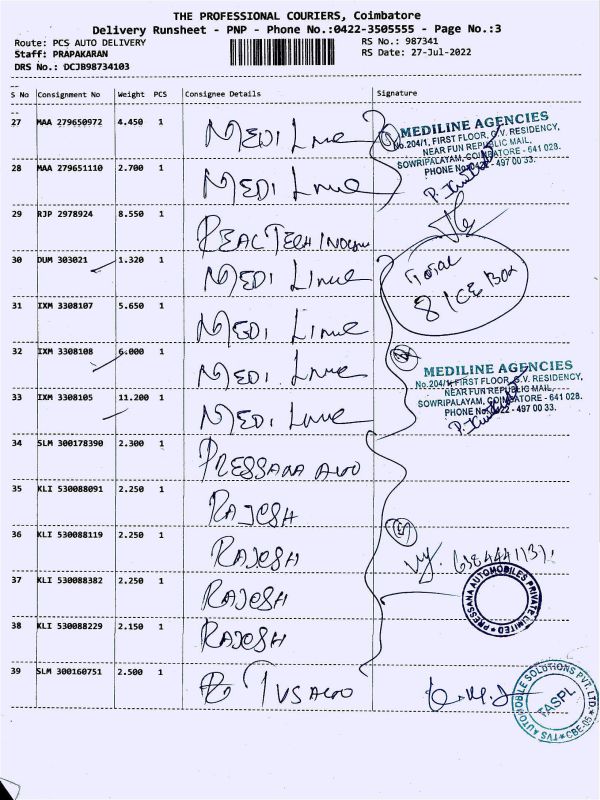 THE PROFESSIONAL COURIERS, Coimbatore
Delivery Runsheet - PNP - Phone No.:0422-3505555 - Page No.:3
Route: PCS AUTO DELIVERY
RS No.: 987341
Staff: PRAPAKARAN
RS Date: 27-Jul-2022
DRS No.: DCJB98734103
S No Consignment No Weight PCS Consignee Details Signature
27 MAA 279650972 4.450 1 MEDI Line
MEDILINE AGENCIES
No.204/1, FIRST FLOOR, G.V. RESIDENCY,
NEAR FUN REPUBLIC MAIL,
SOWRIPALAYAM, COIMBATORE - 641 028.
PHONE No.0422 - 497 00 33.
28 MAA 279651110 2.700 1 MEDI Line
29 RJP 2978924 8.550 1 REAL TECH
30 DUM 303021 1.320 1 MEDI Line
Total
8 ICE BOX
31 IXM 3308107 5.650 1 MEDI Line
32 IXM 3308108 6.000 1 MEDI Line
MEDILINE AGENCIES
No.204/1, FIRST FLOOR, G.V. RESIDENCY,
NEAR FUN REPUBLIC MAIL,
SOWRIPALAYAM, COIMBATORE - 641 028.
PHONE No.0422 - 497 00 33.
33 IXM 3308105 11.200 1 MEDI Line
34 SLM 300178390 2.300 1 PRESSANA AUTO
35 KLI 530088091 2.250 1 RAJESH
36 KLI 530088119 2.250 1 RAJESH
37 KLI 530088382 2.250 1 RAJESH
PRESSANA AUTOMOBILES PRIVATE LIMITED
38 KLI 530088229 2.150 1 RAJESH
39 SLM 300160751 2.500 1 TVS AUTO
TVS AUTOMOBILE SOLUTIONS PVT. LTD. CBE-05
TASPL